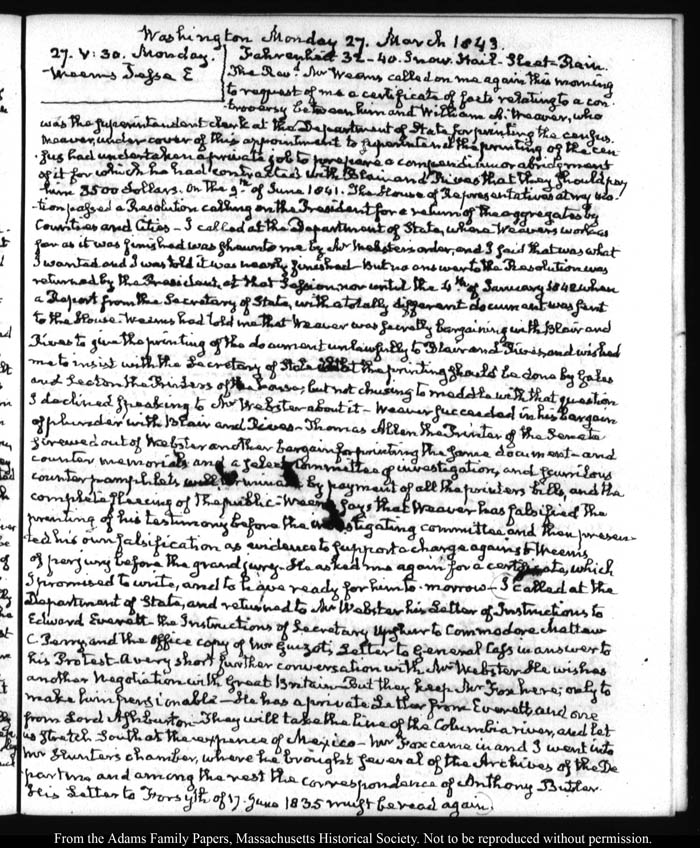 Washington Monday 27. March 1843.
27. V:30. Monday.
Weems Jesse E
Fahrenheit 32-40. Snow. Hail-Sleet-Rain.
The Revd. Mr Weems called on me again this morning
to request of me a certificate of facts relating to a con-
troversy between him and William A. Weaver, who
was the Superintendent clerk at the Department of State for printing the census.
Weaver, under cover of this appointment to superintend the printing of the cen-
sus had undertaken a private job to prepare a compendium or abridgment
of it for which he had contracted with Blair and Rives that they should pay
him 3500 dollars. On the 9th of June 1841. The House of Representatives at my mo-
tion passed a Resolution calling on the President for a return of the aggregates by
Counties and Cities - I called at the Department of State, where Weavers work as
far as it was finished was shewn to me by Mr Websters order, and I said that was what
I wanted and I was told it was nearly finished - But no answer to the Resolution was
returned by the President, at that Session, nor until the 4th of January 1842 when
a Report from the Secretary of State, with a totally different document was sent
to the House. Weems had told me that Weaver was secretly bargaining with Blair and
Rives to give the printing of the document unlawfully to Blair and Rives, and wished
me to insist with the Secretary of State that the printing should be done by Gales
and Seaton the Printers of the House; but not chusing to meddle with that question
I declined speaking to Mr Webster about it - Weaver succeeded in his bargain
of plunder with Blair and Rives - Thomas Allen the Printer of the Senate
screwed out of Webster another bargain for printing the same document - and
counter memorials and a select Committee of investigation, and scurrilous
counter pamphlets by payment of all the printers bills, and the
complete fleecing of the public - Weems says that Weaver has falsified the
printing of his testimony before the investigating committee and then presen-
ted his own falsification as evidence to support a charge against Weems
of perjury before the grand jury. He asked me again for a certificate, which
I promised to write, and to have ready for him to-morrow - I called at the
Department of State, and returned to Mr Webster his Letter of Instructions to
Edward Everett - the Instructions of Secretary Upshur to Commodore Mattew
C. Perry, and the office copy of Mr Guizot's Letter to General Cass in answer to
his Protest - A very short further conversation with Mr Webster. He wishes
another Negotiation with Great Britain - But they keep Mr Fox here; only to
make him pensionable - He has a private Letter from Everett, and one
from Lord Ashburton. They will take the line of the Columbia river, and let
us stretch South at the expence of Mexico - Mr Fox came in and I went into
Mr Hunter's chamber, where he brought several of the Archives of the De-
partment and among the rest the correspondence of Anthony Butler.
His Letter to Forsyth of 17. June 1835 must be read again
From the Adams Family Papers, Massachusetts Historical Society. Not to be reproduced without permission.